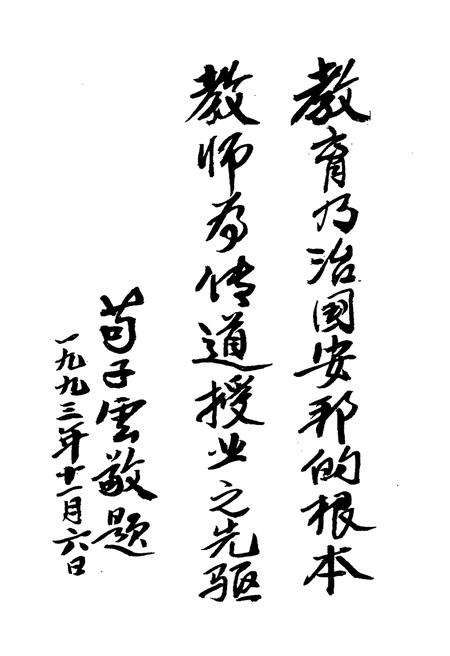 教育乃治国安邦的根本
教师为传道授业之先驱
荀子雲敬题
一九九三年十一月六日